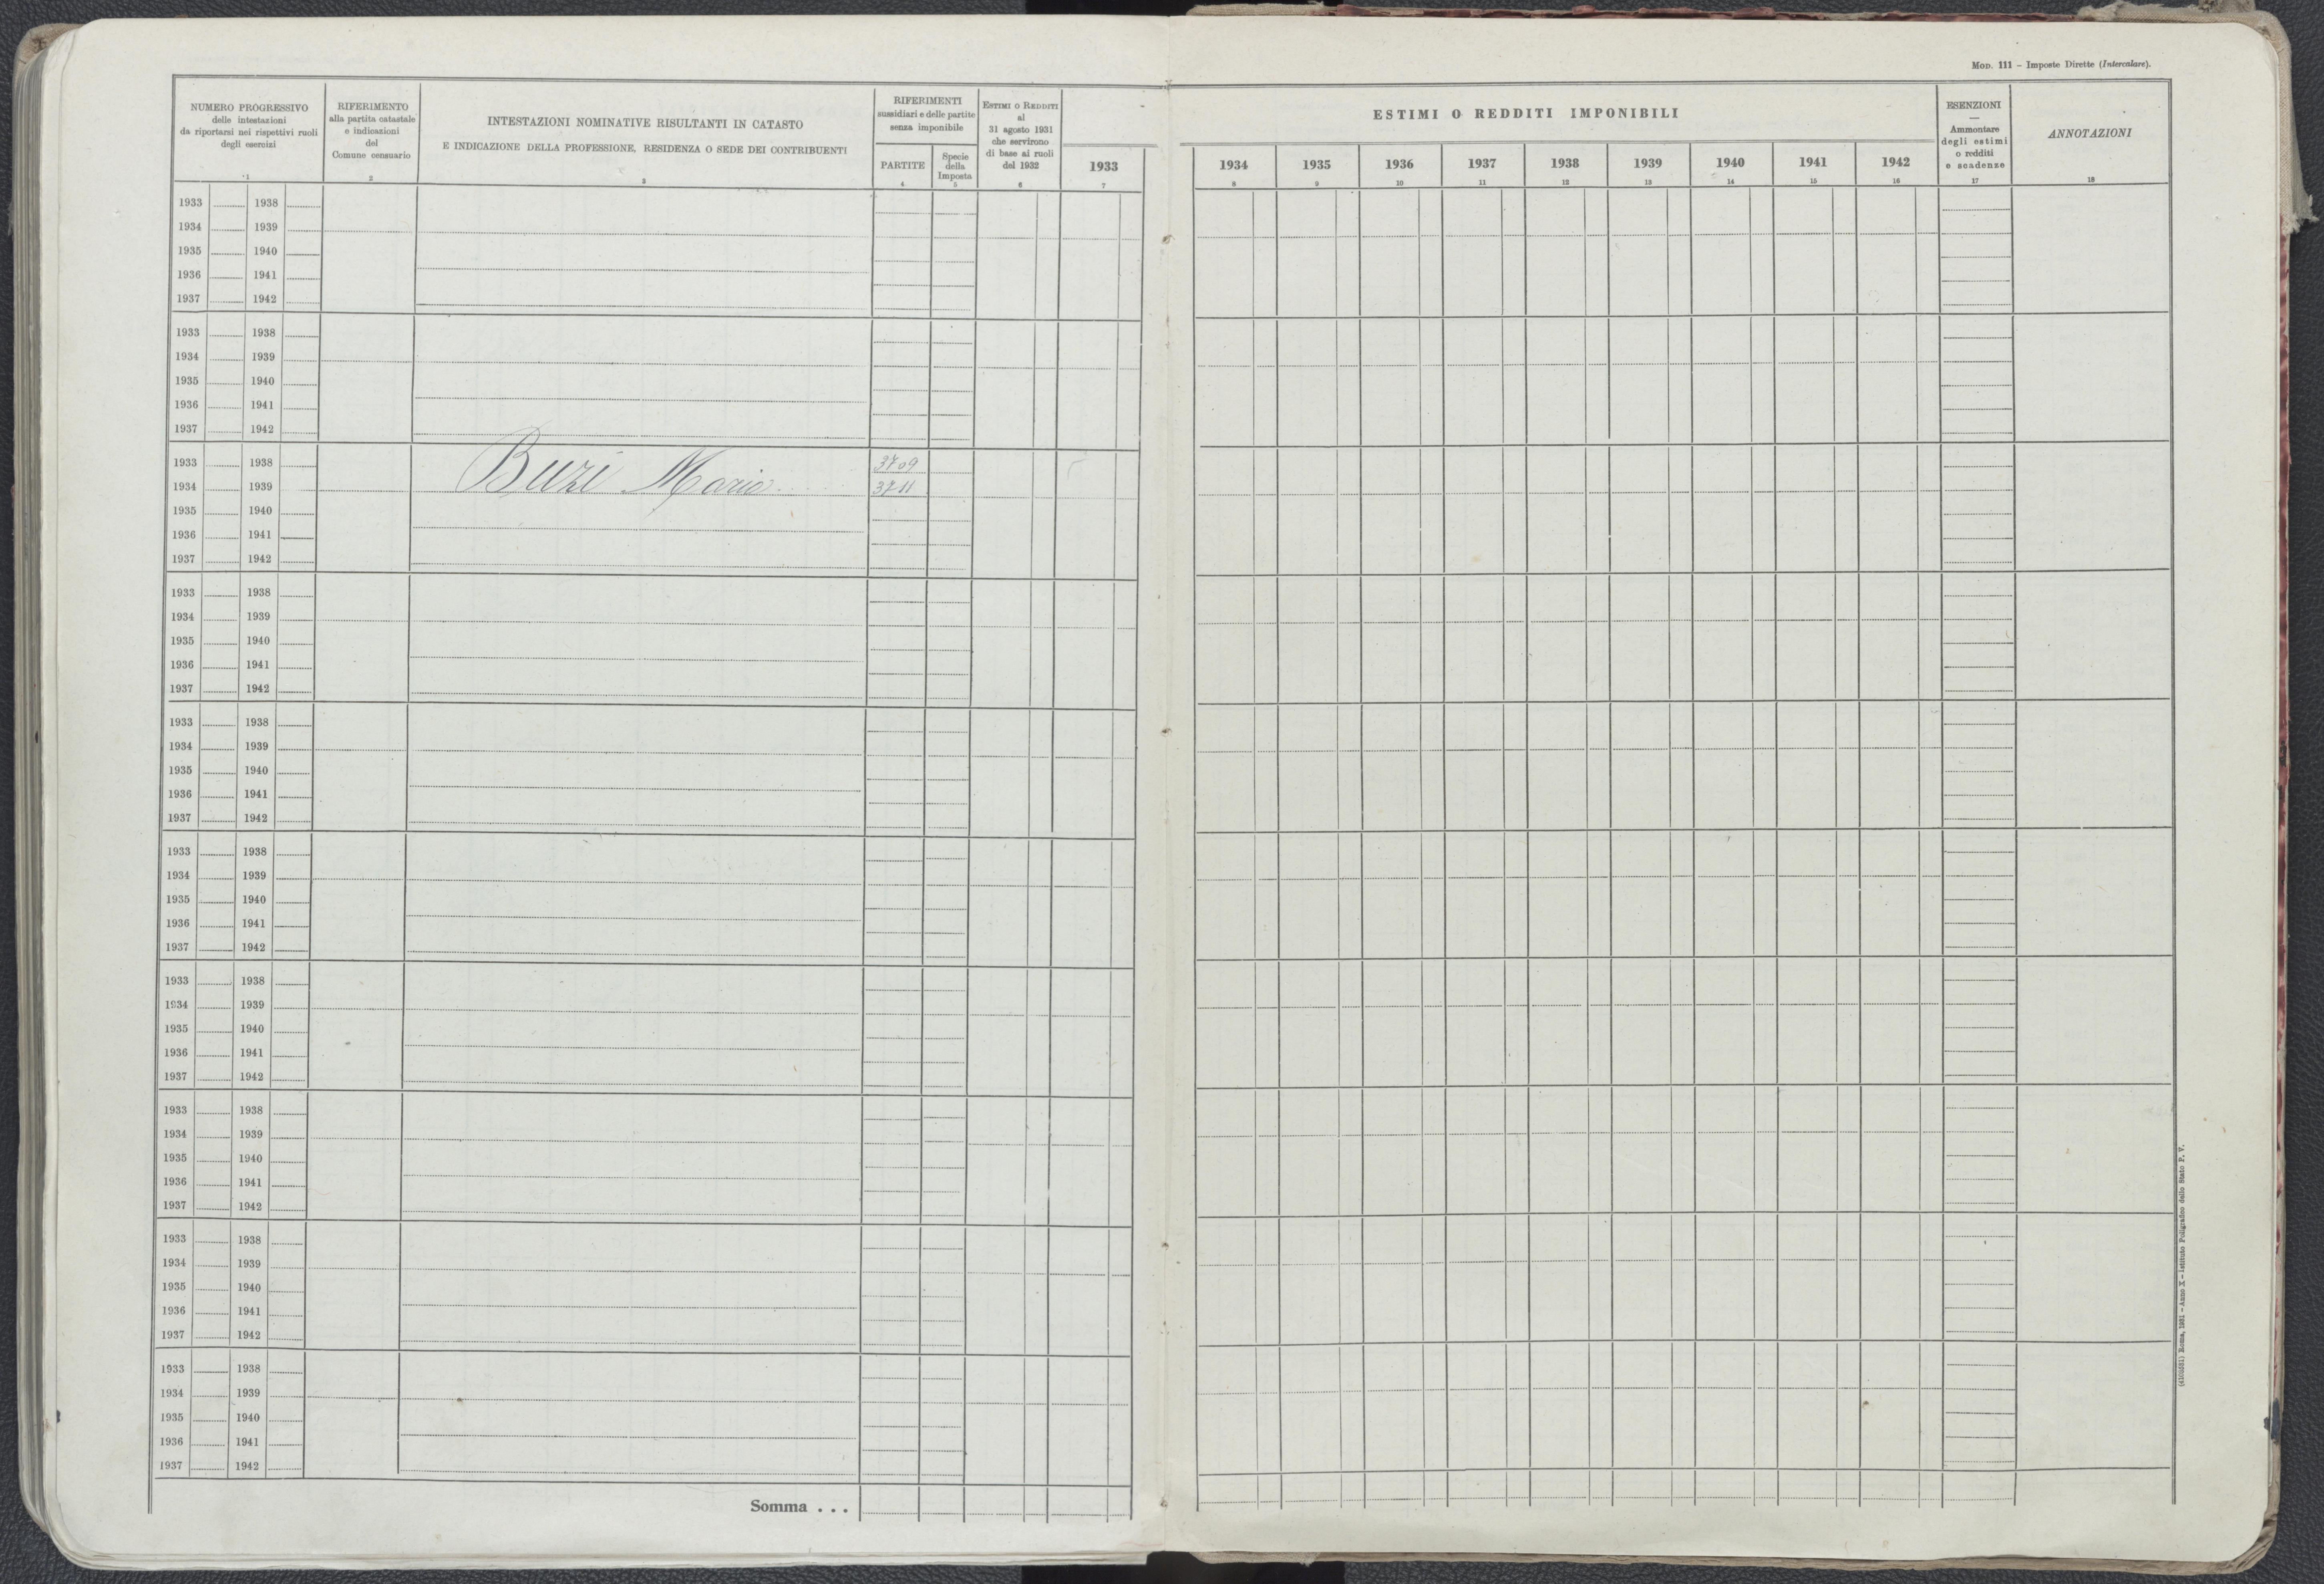 Mod. 111 – Imposte Dirette (Intercalare).
NUMERO PROGRESSIVO
delle intestazioni
da riportarsi nei rispettivi ruoli
degli esercizi
1
RIFERIMENTO
alla partita catastale
e indicazioni
del
Comune censuario
2
INTESTAZIONI NOMINATIVE RISULTANTI IN CATASTO
E INDICAZIONE DELLA PROFESSIONE, RESIDENZA O SEDE DEI CONTRIBUENTI
3
RIFERIMENTI
sussidiari e delle partite
senza imponibile
PARTITE
4
Specie
della
Imposta
5
Estimi o Redditi
al
31 agosto 1931
che servirono
di base ai ruoli
del 1932
6
1933
7
ESTIMI O REDDITI IMPONIBILI
1934 1935 1936 1937 1938 1939 1940 1941 1942
8 9 10 11 12 13 14 15 16
ESENZIONI
—
Ammontare
degli estimi
o redditi
e scadenze
17
ANNOTAZIONI
18
1933 1938
1934 1939
1935 1940
1936 1941
1937 1942
1933 1938
1934 1939
1935 1940
1936 1941
1937 1942
1933 1938 Buzi Maria 3709
1934 1939 3711
1935 1940
1936 1941
1937 1942
1933 1938
1934 1939
1935 1940
1936 1941
1937 1942
1933 1938
1934 1939
1935 1940
1936 1941
1937 1942
1933 1938
1934 1939
1935 1940
1936 1941
1937 1942
1933 1938
1934 1939
1935 1940
1936 1941
1937 1942
1933 1938
1934 1939
1935 1940
1936 1941
1937 1942
1933 1938
1934 1939
1935 1940
1936 1941
1937 1942
1933 1938
1934 1939
1935 1940
1936 1941
1937 1942
Somma . . .
Roma, 1931 – Anno X – Istituto Poligrafico dello Stato P. V.